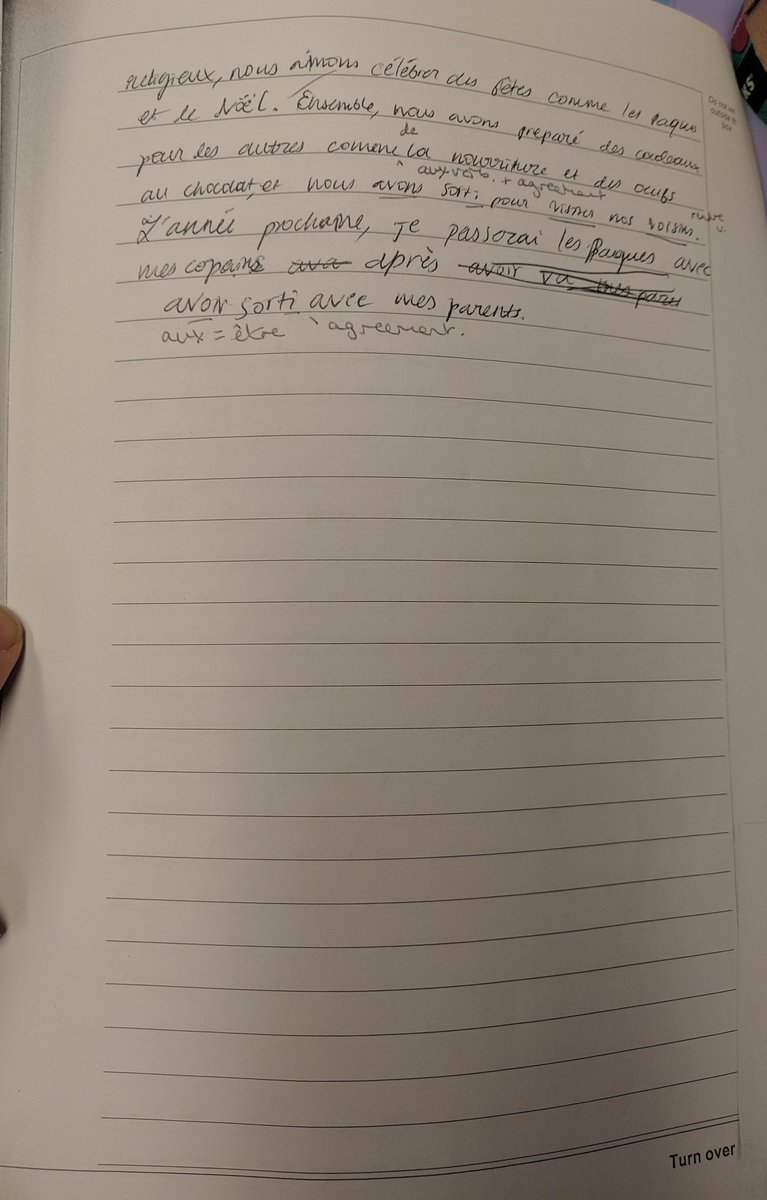 religieux, nous aimons célébrer des fêtes comme les Paques
Do not write outside the box
et le Nöël. Ensemble, nous avons preparé des cadeaux
de
pour les autres comme la nourriture et des oeufs
aux verb. + agreement
au chocolat, et nous avons sorti pour visiter nos voisins.
L'année prochaine, je passerai les Paques avec
mes copains après
avoir sorti avec mes parents.
aux = être agreement.
Turn over